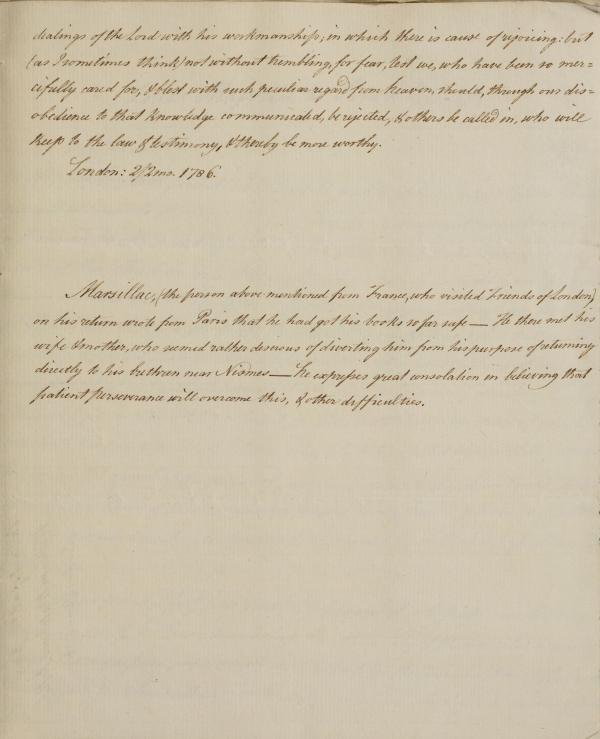 dealings of the Lord with his workmanship; in which there is cause of rejoicing: but
(as I sometimes think) not without trembling, for fear, lest we, who have been so mer-
cifully cared for, & blest with such peculiar regard from heaven, should, through our dis-
obedience to that knowledge communicated, be rejected, & others be called in, who will
keep to the law & testimony, & thereby be more worthy.
London: 2/2mo. 1786.
Marsillac, (the person above mentioned from France, who visited Friends of London)
on his return wrote from Paris that he had got his books so far safe — He there met his
wife & mother, who seemed rather desirous of diverting him from his purpose of returning
directly to his brethren near Nismes — he expresses great consolation in believing that
patient perseverance will overcome this, & other difficulties.